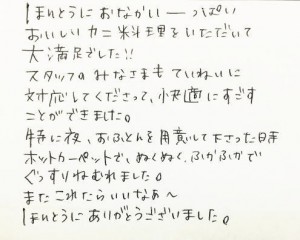 ほんとうに おなかい――っぱい
おいしい カニ料理をいただいて
大満足でした!!
スタッフのみなさまも ていねいに
対応してくださって、快適にすごす
ことができました。
特に夜、おふとんを用意して下さった時
ホットカーペットで、ぬくぬく、ふかふかで
ぐっすりねむれました。
また これたらいいなぁ～
ほんとうに ありがとうございました。